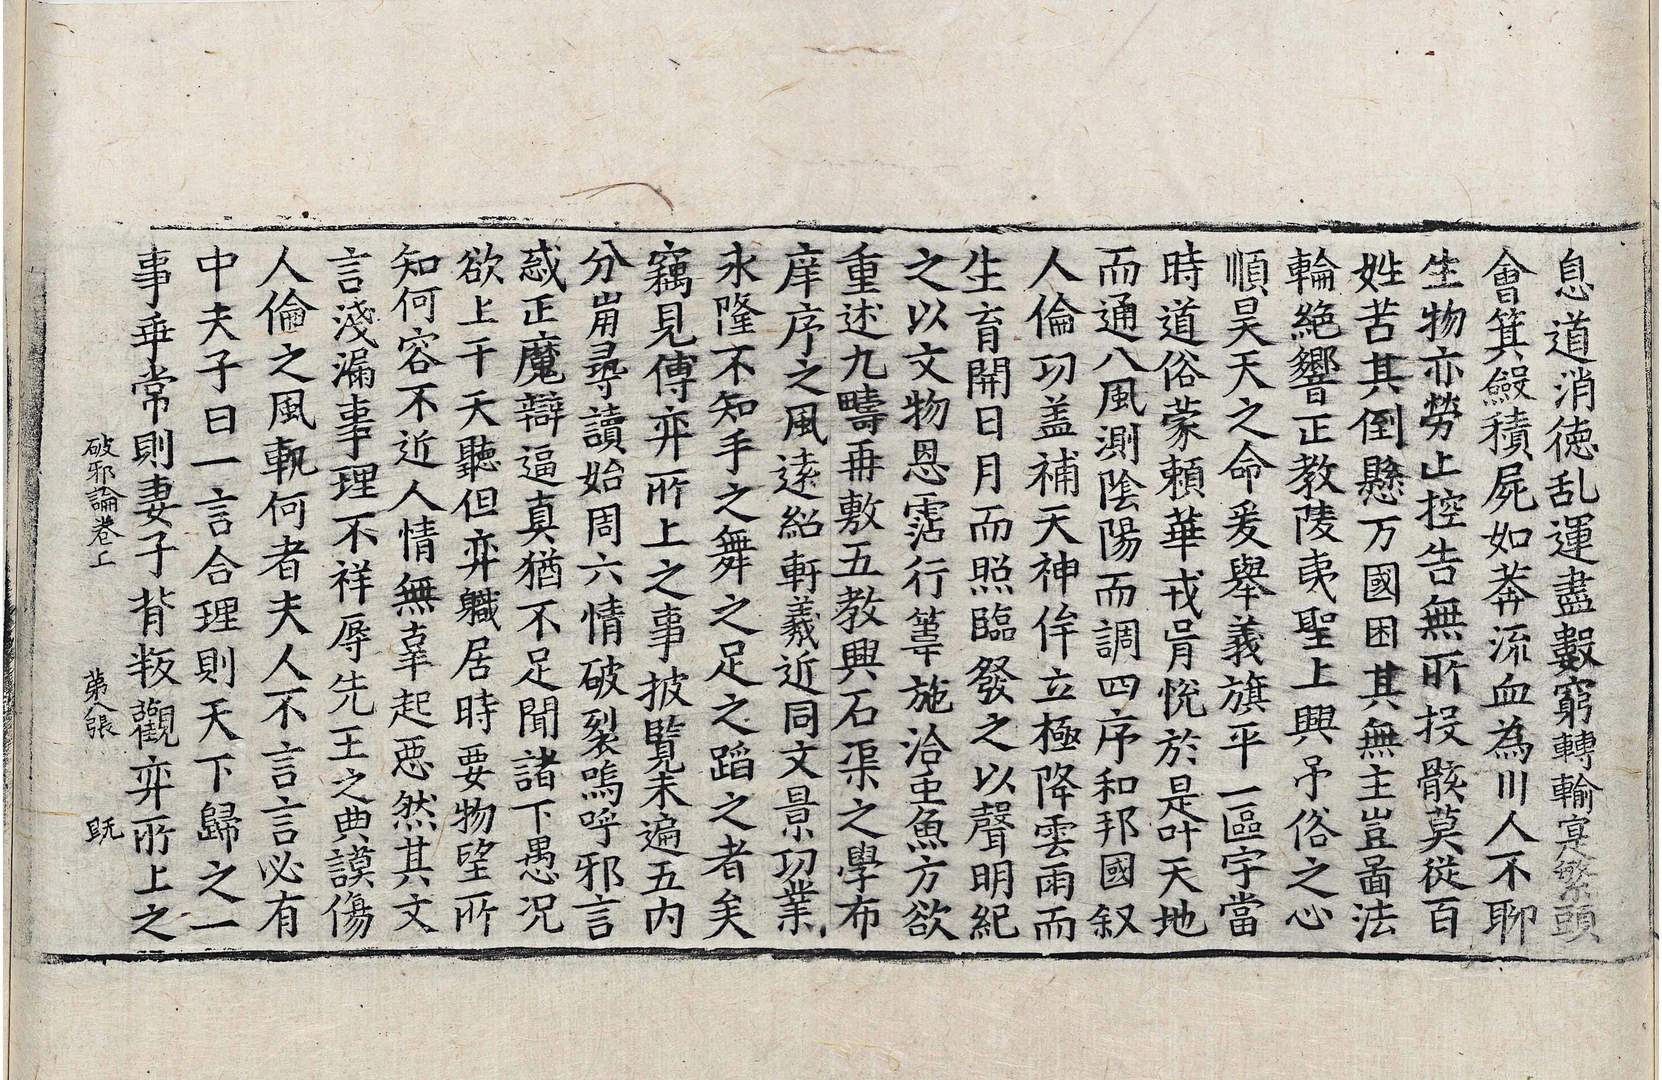 息道消徳乱運盡數窮轉輸寔繁頭
會箕斂積屍如莽流血為川人不聊
生物亦勞止控告無所投骸莫從百
姓苦其倒懸万國困其無主豈啚法
輪絶響正教陵夷聖上興弔俗之心
順昊天之命爰舉義旗平一區宇當
時道俗蒙賴華戎胥悅於是叶天地
而通八風測陰陽而調四序和邦國叙
人倫功盖補天神侔立極降雲雨而
生育開日月而照臨發之以聲明紀
之以文物恩霑行葦施洽䖝魚方欲
重述九疇再敷五教興石渠之學布
庠序之風遠紹軒羲近同文景功業
永隆不知手之舞之足之蹈之者矣
竊見傅弈所上之事披覽未遍五内
分崩尋讀始周六情破裂嗚呼邪言
惑正魔辯逼真猶不足聞諸下愚况
欲上干天聽但弈職居時要物望所
知何容不近人情無辜起惡然其文
言淺漏事理不祥辱先王之典謨傷
人倫之風軌何者夫人不言言必有
中夫子曰一言合理則天下歸之一
事乖常則妻子背叛觀弈所上之
破邪論卷上 第八張 旣